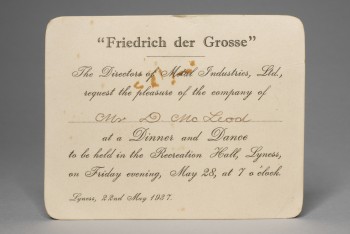 "Friedrich der Grosse"
The Directors of Metal Industries, Ltd.,
request the pleasure of the company of
Mr D. McLeod
at a Dinner and Dance
to be held in the Recreation Hall, Lyness,
on Friday evening, May 28, at 7 o'clock.
Lyness, 22nd May 1937.